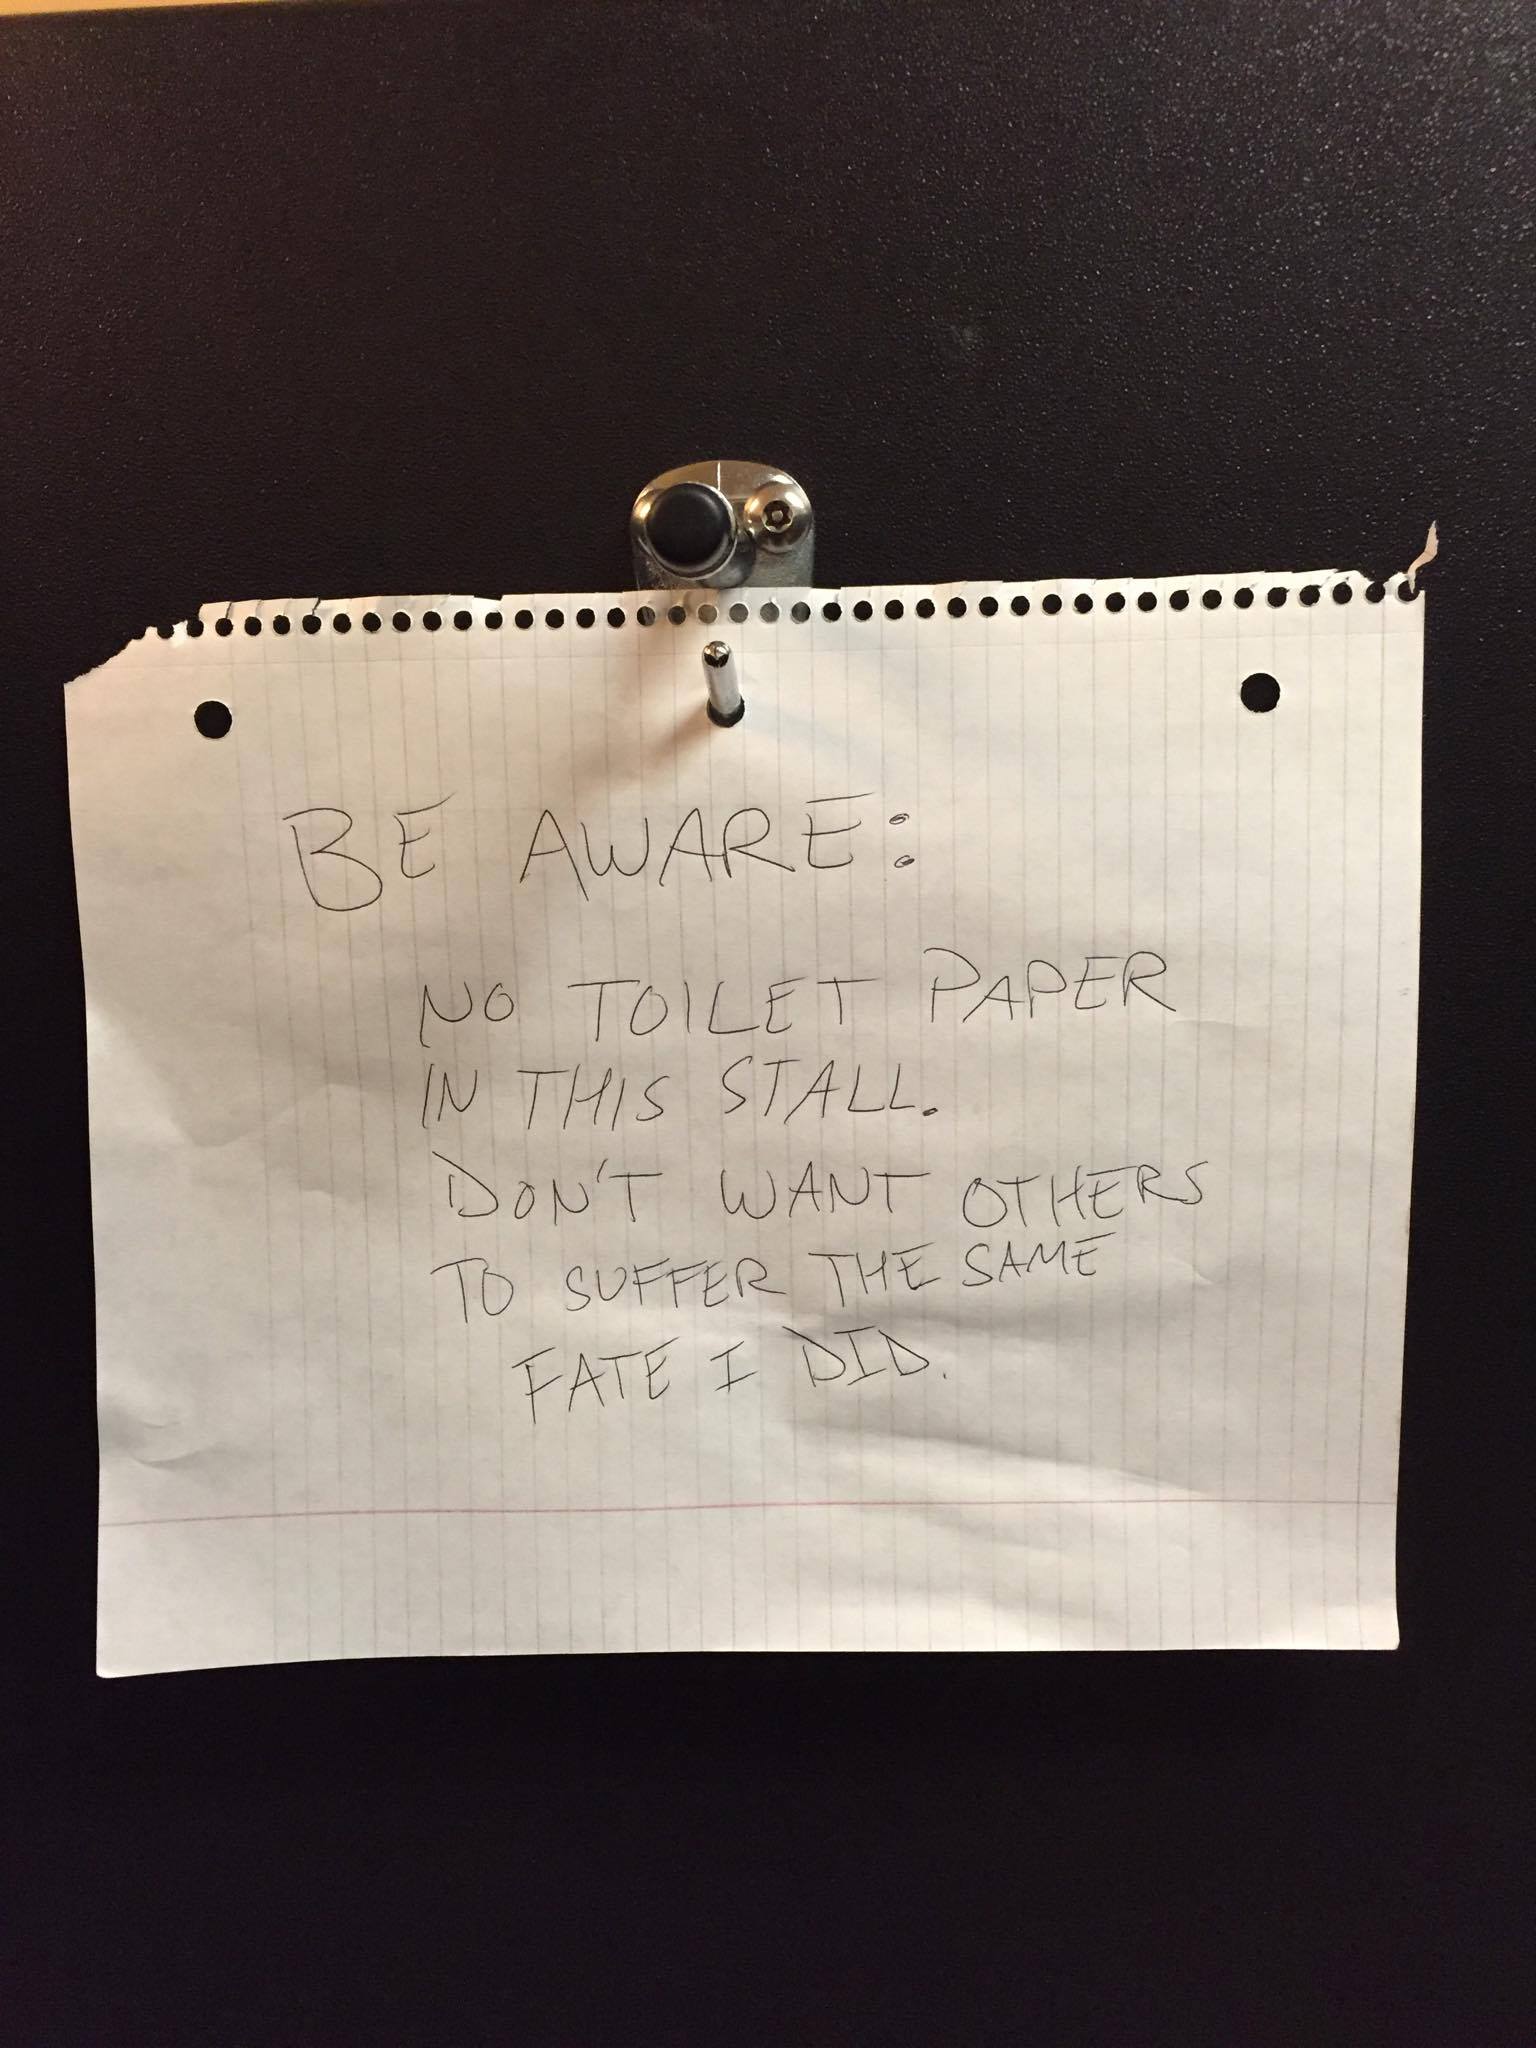 BE AWARE:
NO TOILET PAPER
IN THIS STALL.
DON'T WANT OTHERS
TO SUFFER THE SAME
FATE I DID.